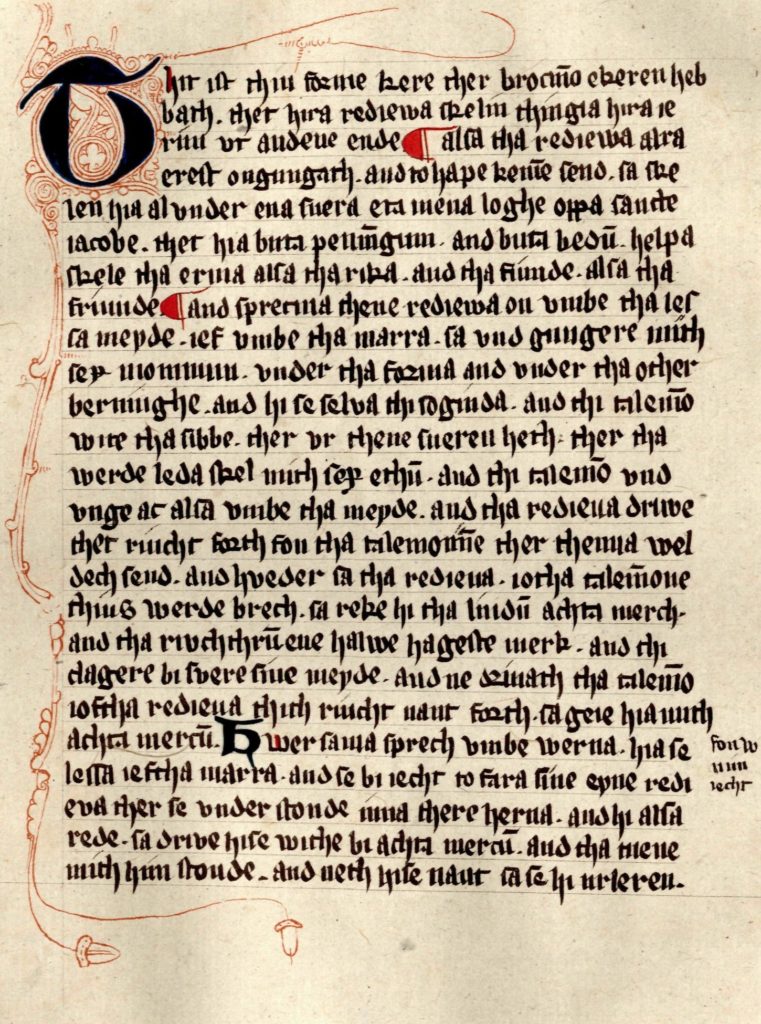 Thit ist thiu forme kere ther brocmō ekeren heb
bath. thet hira rediewa skelin thingia hira ie
rim vt and eue ende ¶ alsa tha rediewa alra
erest ongungath. and to hape kemē send. sa ske
len hia al vnder ena suera eta mena loghe oppa sancte
iacobe. thet hia buta penn̄gum. and buta bedū. helpa
skele tha erma alsa tha rika. and tha fiunde. alsa tha
friunde ¶ and sprecma thene rediewa on vmbe tha les
sa meyde. ief vmbe tha marra. sa vnd gungere mith
sex monnum. vnder tha forma and vnder tha other
berninghe. and hi se selua thi sogenda. and thi talemō
wite tha sibbe. ther vr thene sueren heth. ther tha
werde leda skel mith sex ethū. and thi talemō vnd
vnge ac alsa vmbe tha meyde. and tha redieua driwe
thet riucht forth fon tha talemonnē ther thenna wel
dech send. and hweder sa tha redieua. iotha talemōne
thius werde brech. sa reke hi tha liudū achta merch.
and tha riuchthrū ene halwe hageste merk. and thi
clagere bi suere sine meyde. and ne driuath tha talemō
ioftha redieua thich riucht naut forth. sa geie hia mith
achta mercū. Hwersama sprech vmbe werna. hia se
lessa ieftha marra. and se bi iecht to fara sine epne redi
eva ther se vnder stonde inna there herna. and hi alsa
rede. sa driwe hise withe bi achta mercū. and tha mene
mith him stonde. and neth hise naut sa se hi urleren.
fon w
nun
iecht